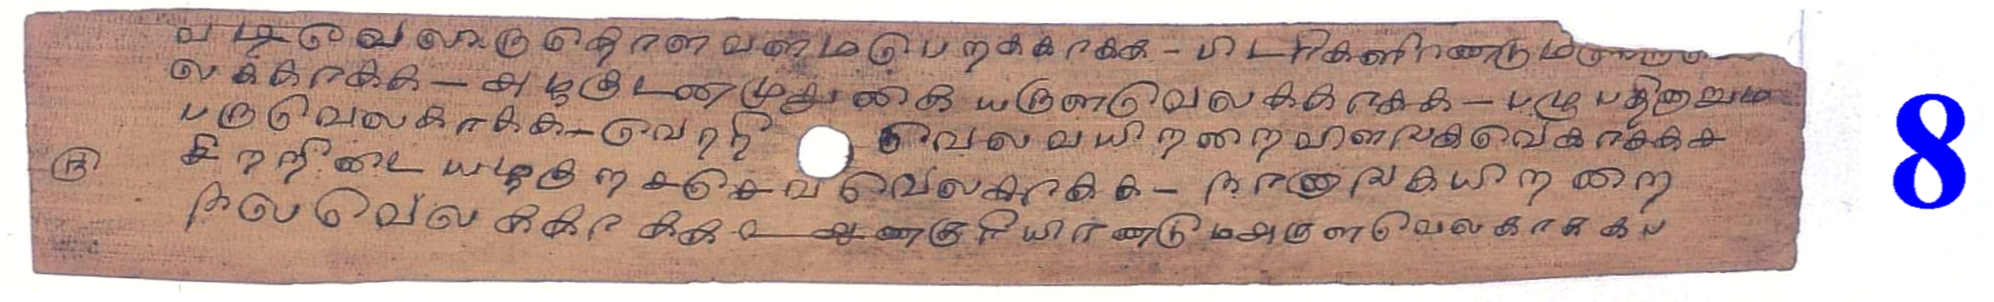 வடிவெலிருதொளவளமபெறக்காக்க - பிடரிகளிரணடும
லக்காக்க - அழகுடணமுதுகை யருளவெலக்காக்க - பழுபதினாறும
பருவெலகாக்க - வெற்றி வெலவயிறறைவிளஙகவெகாக்கச
சிறறிடை யழகுறசசெவவெலகாக்க - நாணாஙகயிறறை
நலவெலக்காக்க - ஆணகுறியிரணடுமஅருளவெலகாக்கப
ரு
8